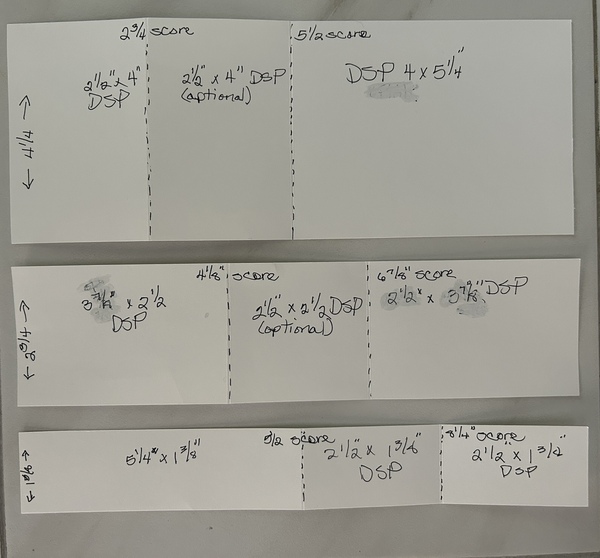 2 3/4 score
5 1/2 score
2 1/2" x 4"
DSP
2 1/2" x 4" DSP
(optional)
DSP 4 x 5 1/4"
← 4 1/4 →
4 1/8" score
6 7/8" score
3 7/8" x 2 1/2
DSP
2 1/2" x 2 1/2 DSP
(optional)
2 1/2" x 3 7/8" DSP
← 2 3/4 →
5 1/2 score
8 1/4" score
5 1/4" x 1 3/8"
2 1/2" x 1 3/8"
DSP
2 1/2" x 1 3/8"
DSP